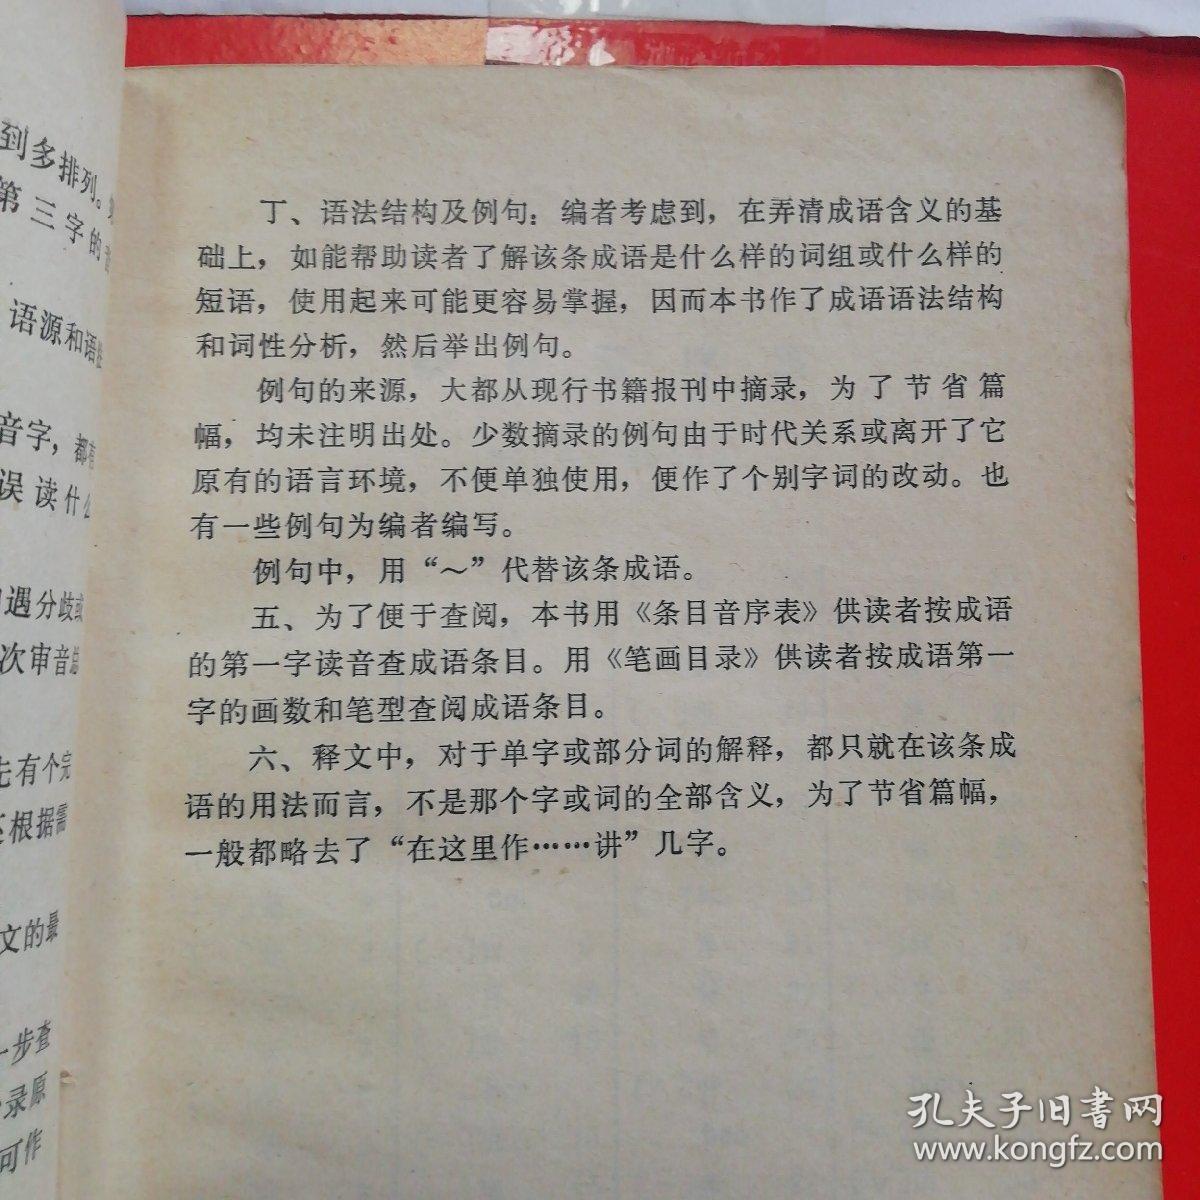 到多排列。
第三字的
语源和语
音字，都有
误读什么
遇分歧或
次审音总
先有个完
根据需
文的最
一步查
录原
可作
丁、语法结构及例句：编者考虑到，在弄清成语含义的基
础上，如能帮助读者了解该条成语是什么样的词组或什么样的
短语，使用起来可能更容易掌握，因而本书作了成语语法结构
和词性分析，然后举出例句。
例句的来源，大都从现行书籍报刊中摘录，为了节省篇
幅，均未注明出处。少数摘录的例句由于时代关系或离开了它
原有的语言环境，不便单独使用，便作了个别字词的改动。也
有一些例句为编者编写。
例句中，用“～”代替该条成语。
五、为了便于查阅，本书用《条目音序表》供读者按成语
的第一字读音查成语条目。用《笔画目录》供读者按成语第一
字的画数和笔型查阅成语条目。
六、释文中，对于单字或部分词的解释，都只就在该条成
语的用法而言，不是那个字或词的全部含义，为了节省篇幅，
一般都略去了“在这里作……讲”几字。
孔夫子旧书网
www.kongfz.com